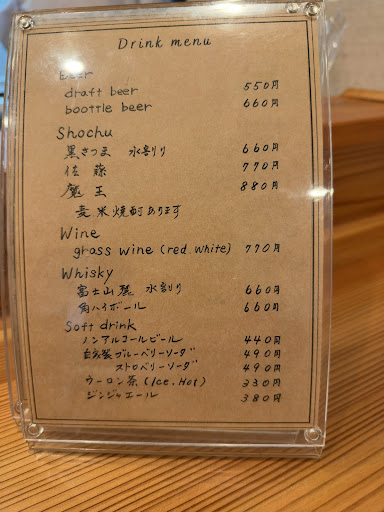 Drink menu
Beer
draft beer 550円
boottle beer 660円
Shochu
黒さつま 水割り 660円
佐藤 770円
魔王 880円
麦米焼酎あります
Wine
grass wine (red.white) 770円
Whisky
富士山麓 水割り 660円
角ハイボール 660円
Soft drink
ノンアルコールビール 440円
自家製ブルーベリーソーダ 490円
ストロベリーソーダ 490円
ウーロン茶 (Ice.Hot) 330円
ジンジャエール 380円